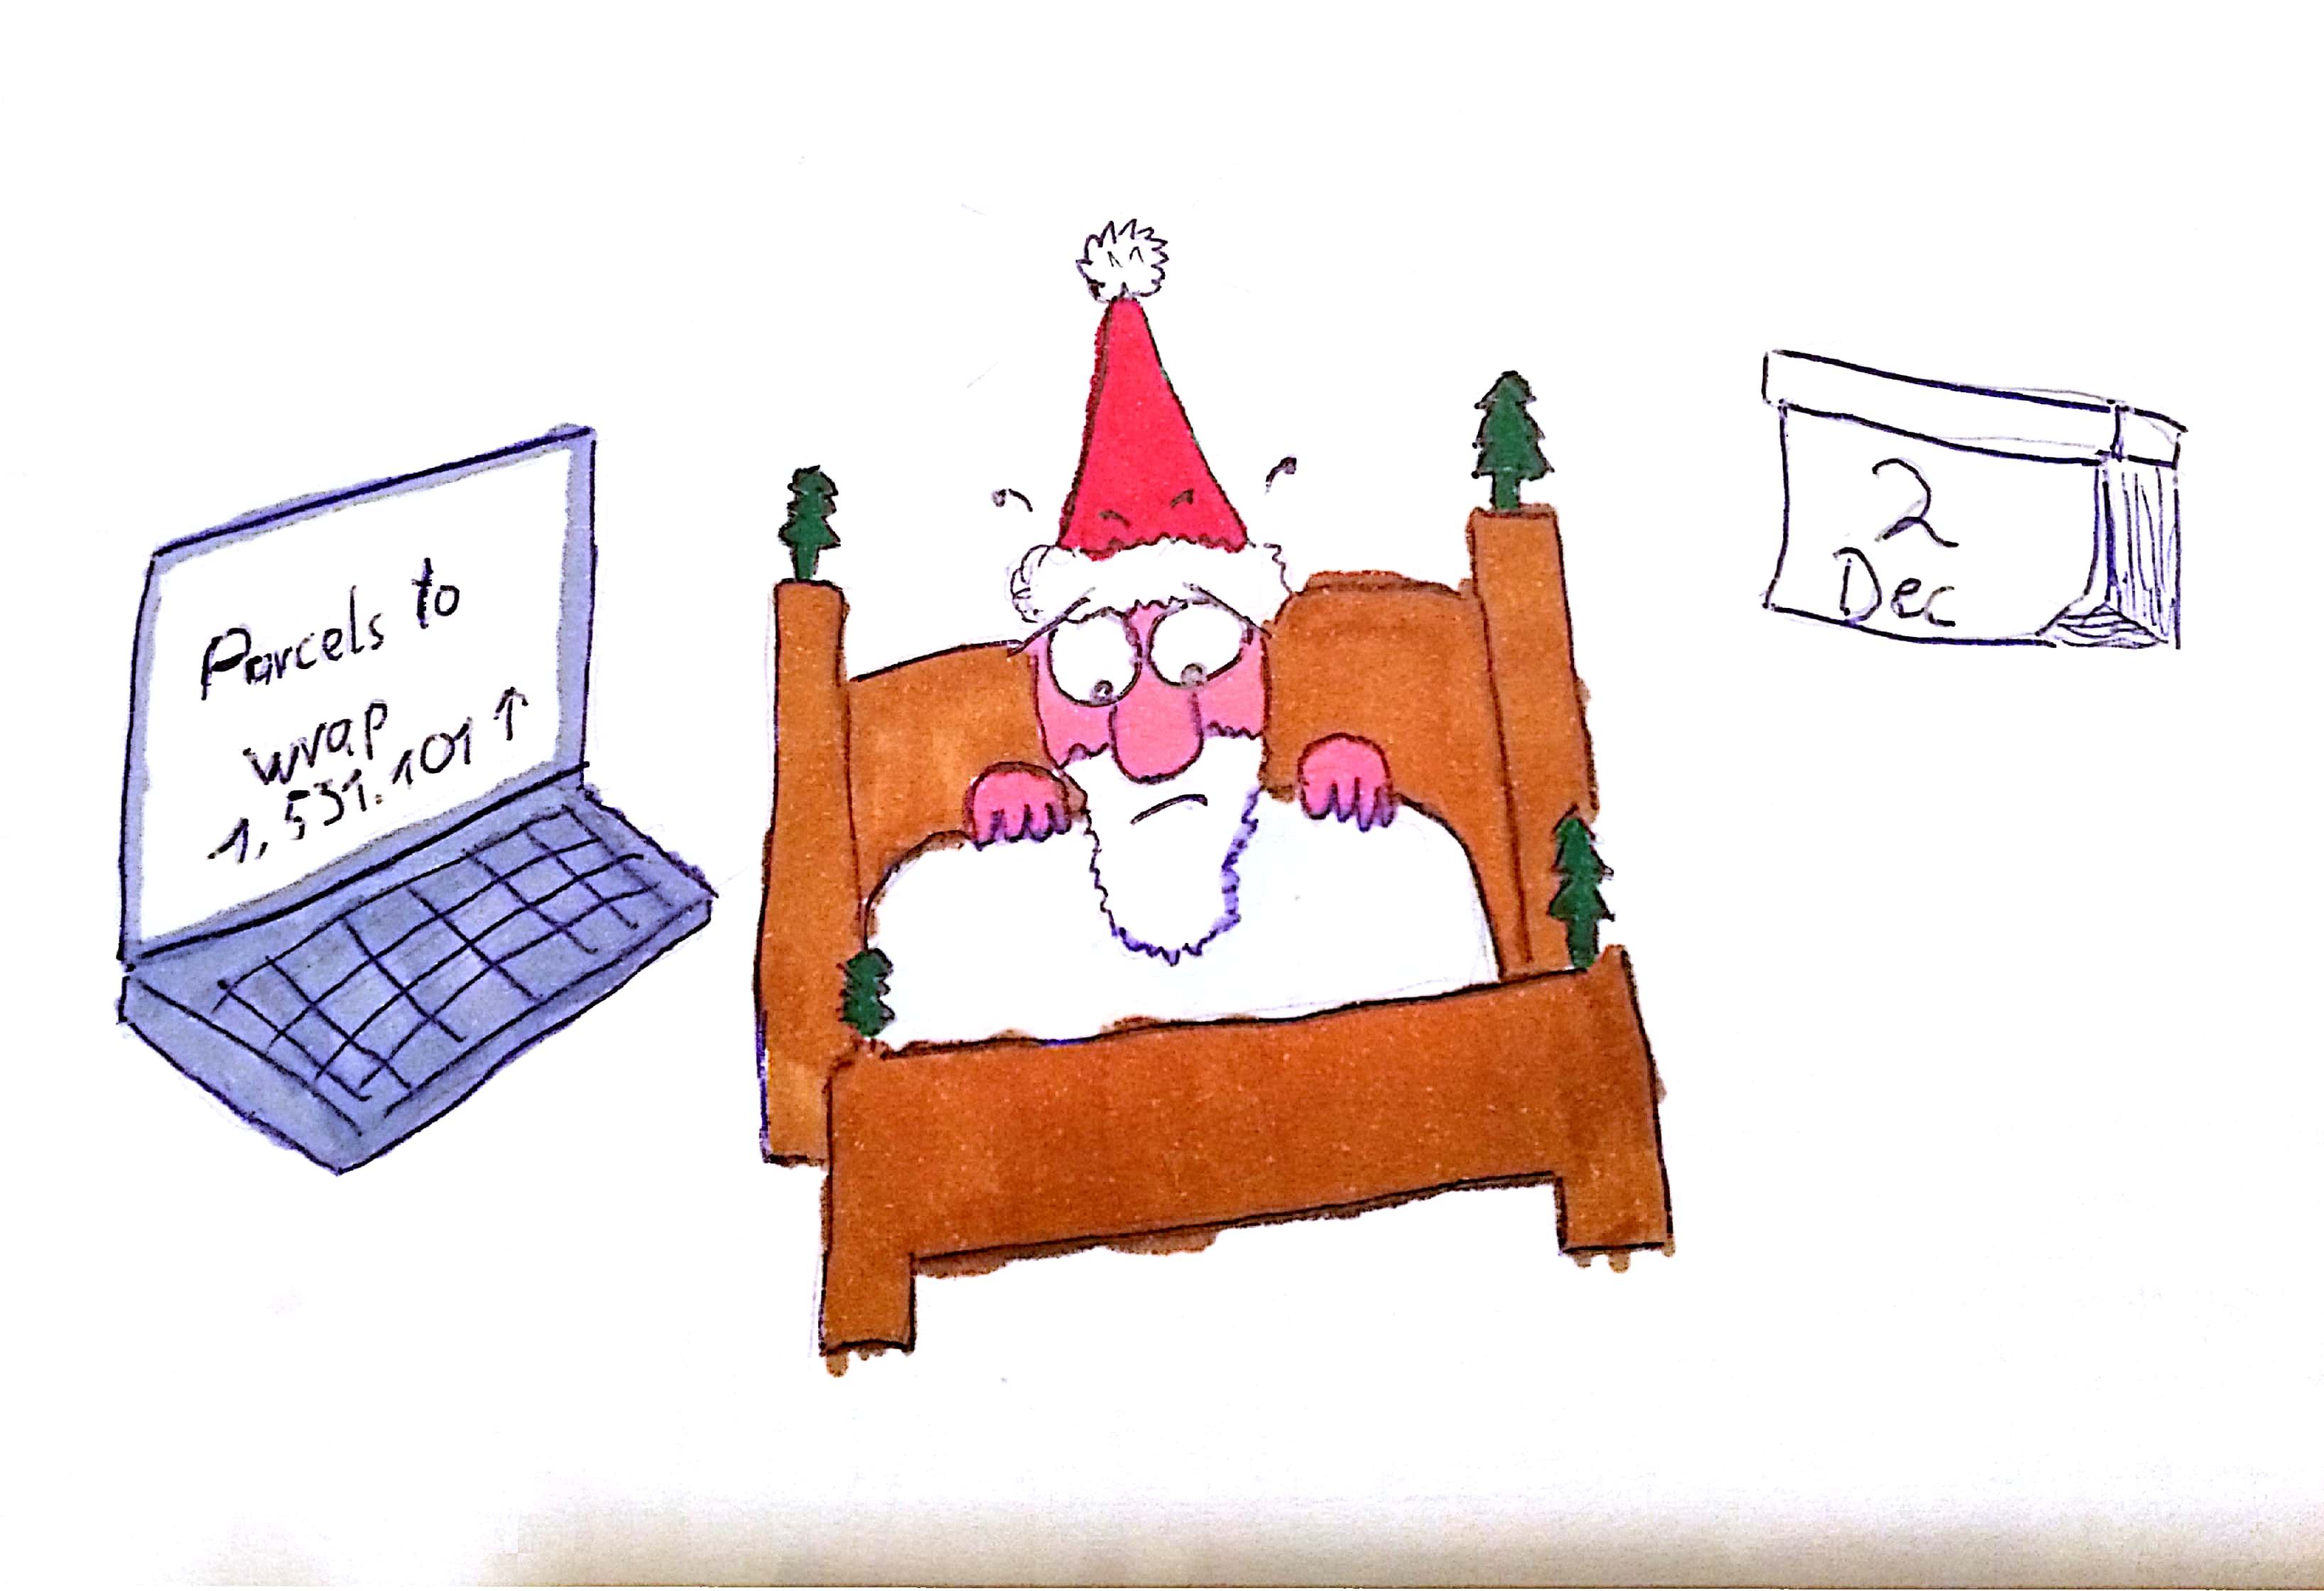 Parcels to
wrap
1,531.101 ↑
2
Dec